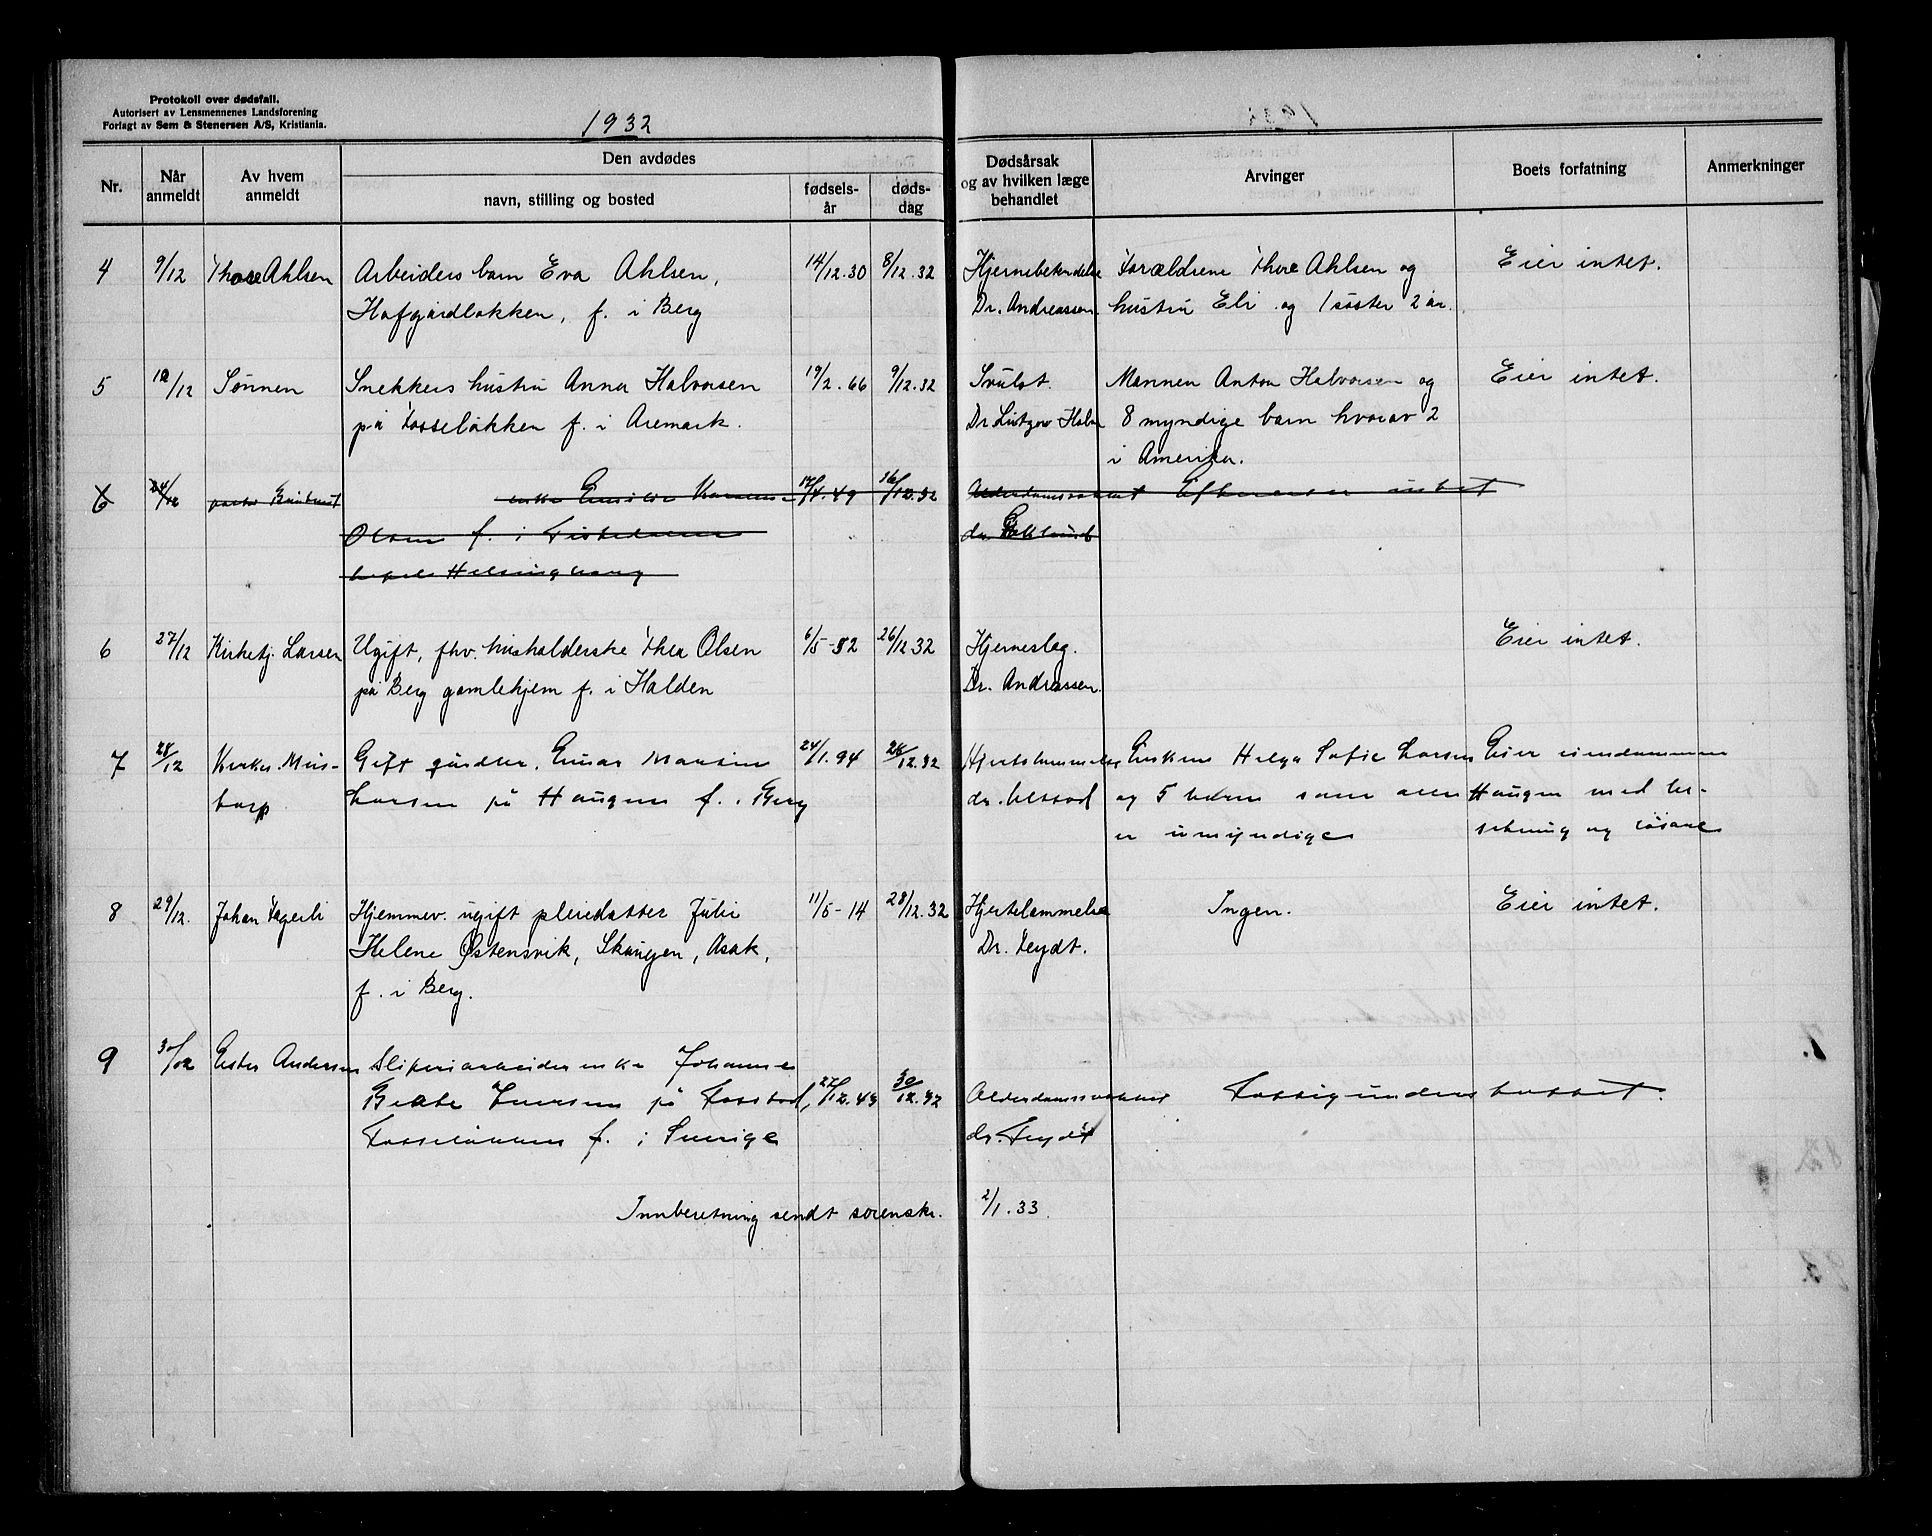 Protokoll over dødsfall.
Autorisert av Lensmennenes Landsforening
Forlagt av Sem & Stenersen A/S, Kristiania.
1932
Nr.
Når anmeldt
Av hvem anmeldt
Den avdødes
navn, stilling og bosted
fødselsår
dødsdag
Dødsårsak og av hvilken læge behandlet
Arvinger
Boets forfatning
Anmerkninger
4 9/12 Thore Ahlsen Arbeiders barn Eva Ahlsen, 14/12.30 8/12.32 Hjernebetendelse Foreldrene Thore Ahlsen og Eier intet.
Hafgårdløkken, f. i Berg Dr. Andreassen. hustru Eli og 1 søster 2 år.
5 10/12 Sønnen Snekkers hustru Anna Halvorsen 19/2.66 9/12.32 Svulst. Mannen Anton Halvorsen og Eier intet.
på Fosseløkken f. i Aremark. Dr. Lützow Holm 8 myndige barn hvorav 2
i Amerika.
6 24/12 enke 17/4.49 16/12.32 Alderdomssvakhet Efterlater intet
Olsen f. i Tistedalen dr.
6 27/12 Kirketj. Larsen Ugift, fhv. husholderske Thea Olsen 6/5-52 26/12 32 Hjerneslag. Eier intet.
på Berg gamlehjem f. i Halden Dr. Andreassen.
7 28/12 Gift gårdbr. Einar 24/1.94 26/12.32 Hjertelammelse Enken Helga Sofie Larsen Eier eiendommen
Larsen på Haugen f. i Berg dr. og 5 barn som alle Haugen med be-
er umyndige setning og løsøre
8 29/12. Johan Fagerli Hjemmev. ugift pleiedatter Juli 11/5-14 28/12.32 Hjertelammelse Ingen. Eier intet.
Helene Østensvik, Skaugen, Asak, Dr. Feydt.
f. i Berg.
9 30/12 Ester Andersen Sliperiarbeider enke Johanne
Beate Iversen på Fosstad, 27/12.43 30/12.32 Alderdomssvakhet Fattigunderstøttet.
Fosseløkken f. i Sverige dr. Feydt
Innberetning sendt sorenskr. 2/1.33